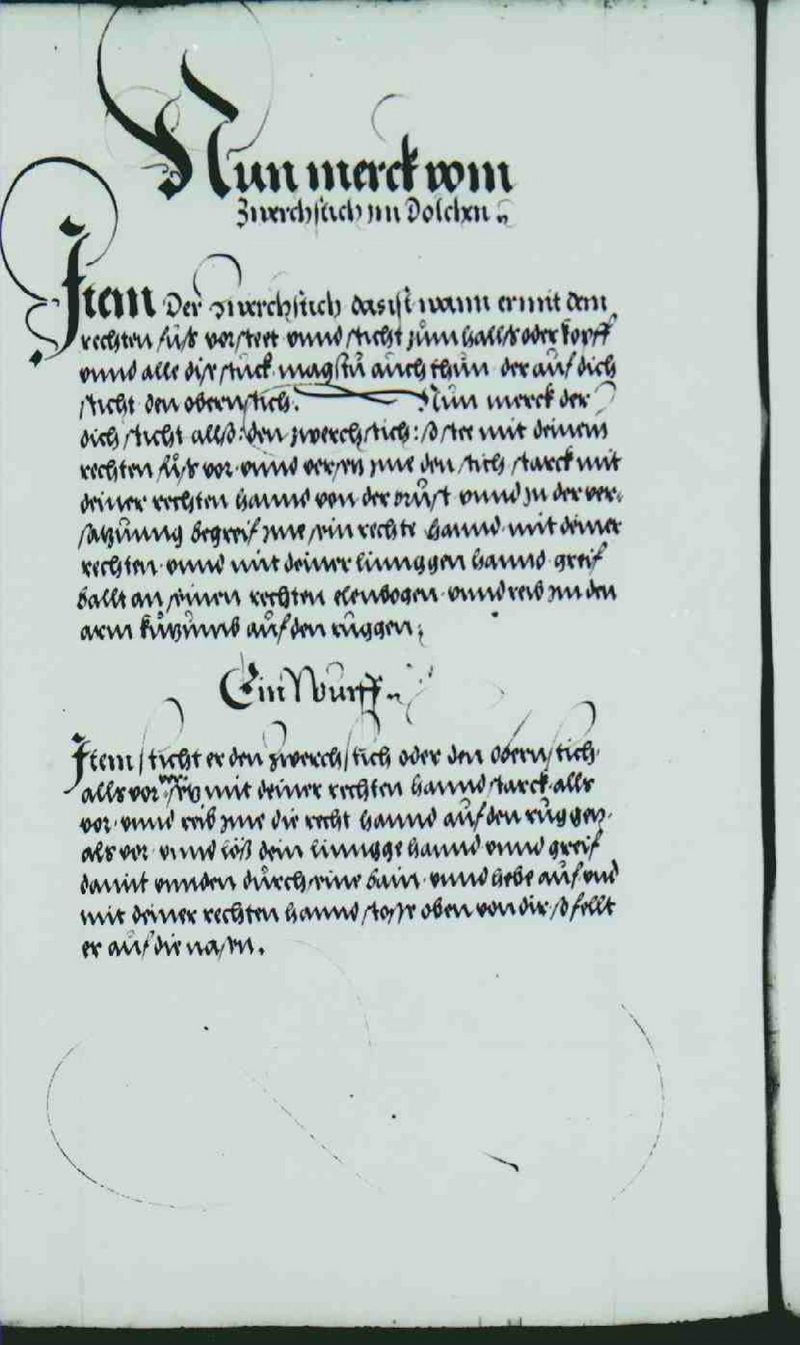 Nun merck vom
Zwerchstich im Dolchen
Item Der zwerchstich das ist wann er mit dem
rechten fůß vorsteet vnnd sticht zům hallß oder kopff
vnnd alle dise stuck magstů auch thůn der auf dich
sticht den obernstich. Nůn merck der
dich sticht allß: den zwerchstich: so stee mit deinem
rechten fůß vor vnnd versetz jme den stich starck mit
deiner rechten hannd von der brůst vnnd jn der ver-
satzůnng begreif jme sein rechte hannd mit deiner
rechten vnnd mit deiner linnggen hannd greif
ballt an seinen rechten elenbogen vnnd reib jm den
arm auf den růggen
Ein Wurff
Item sticht er den zwerchstich oder den obernstich
allß vor mit deiner rechten hannd starck allß
vor vnnd reib jme die recht hannd auf den růggen
als vor vnnd löß dein linngge hannd vnnd greif
damit vnnden důrch seine bain vnnd hebe auf vnd
mit deiner rechten hannd stosse oben von dir so fellt
er auf die nasen.